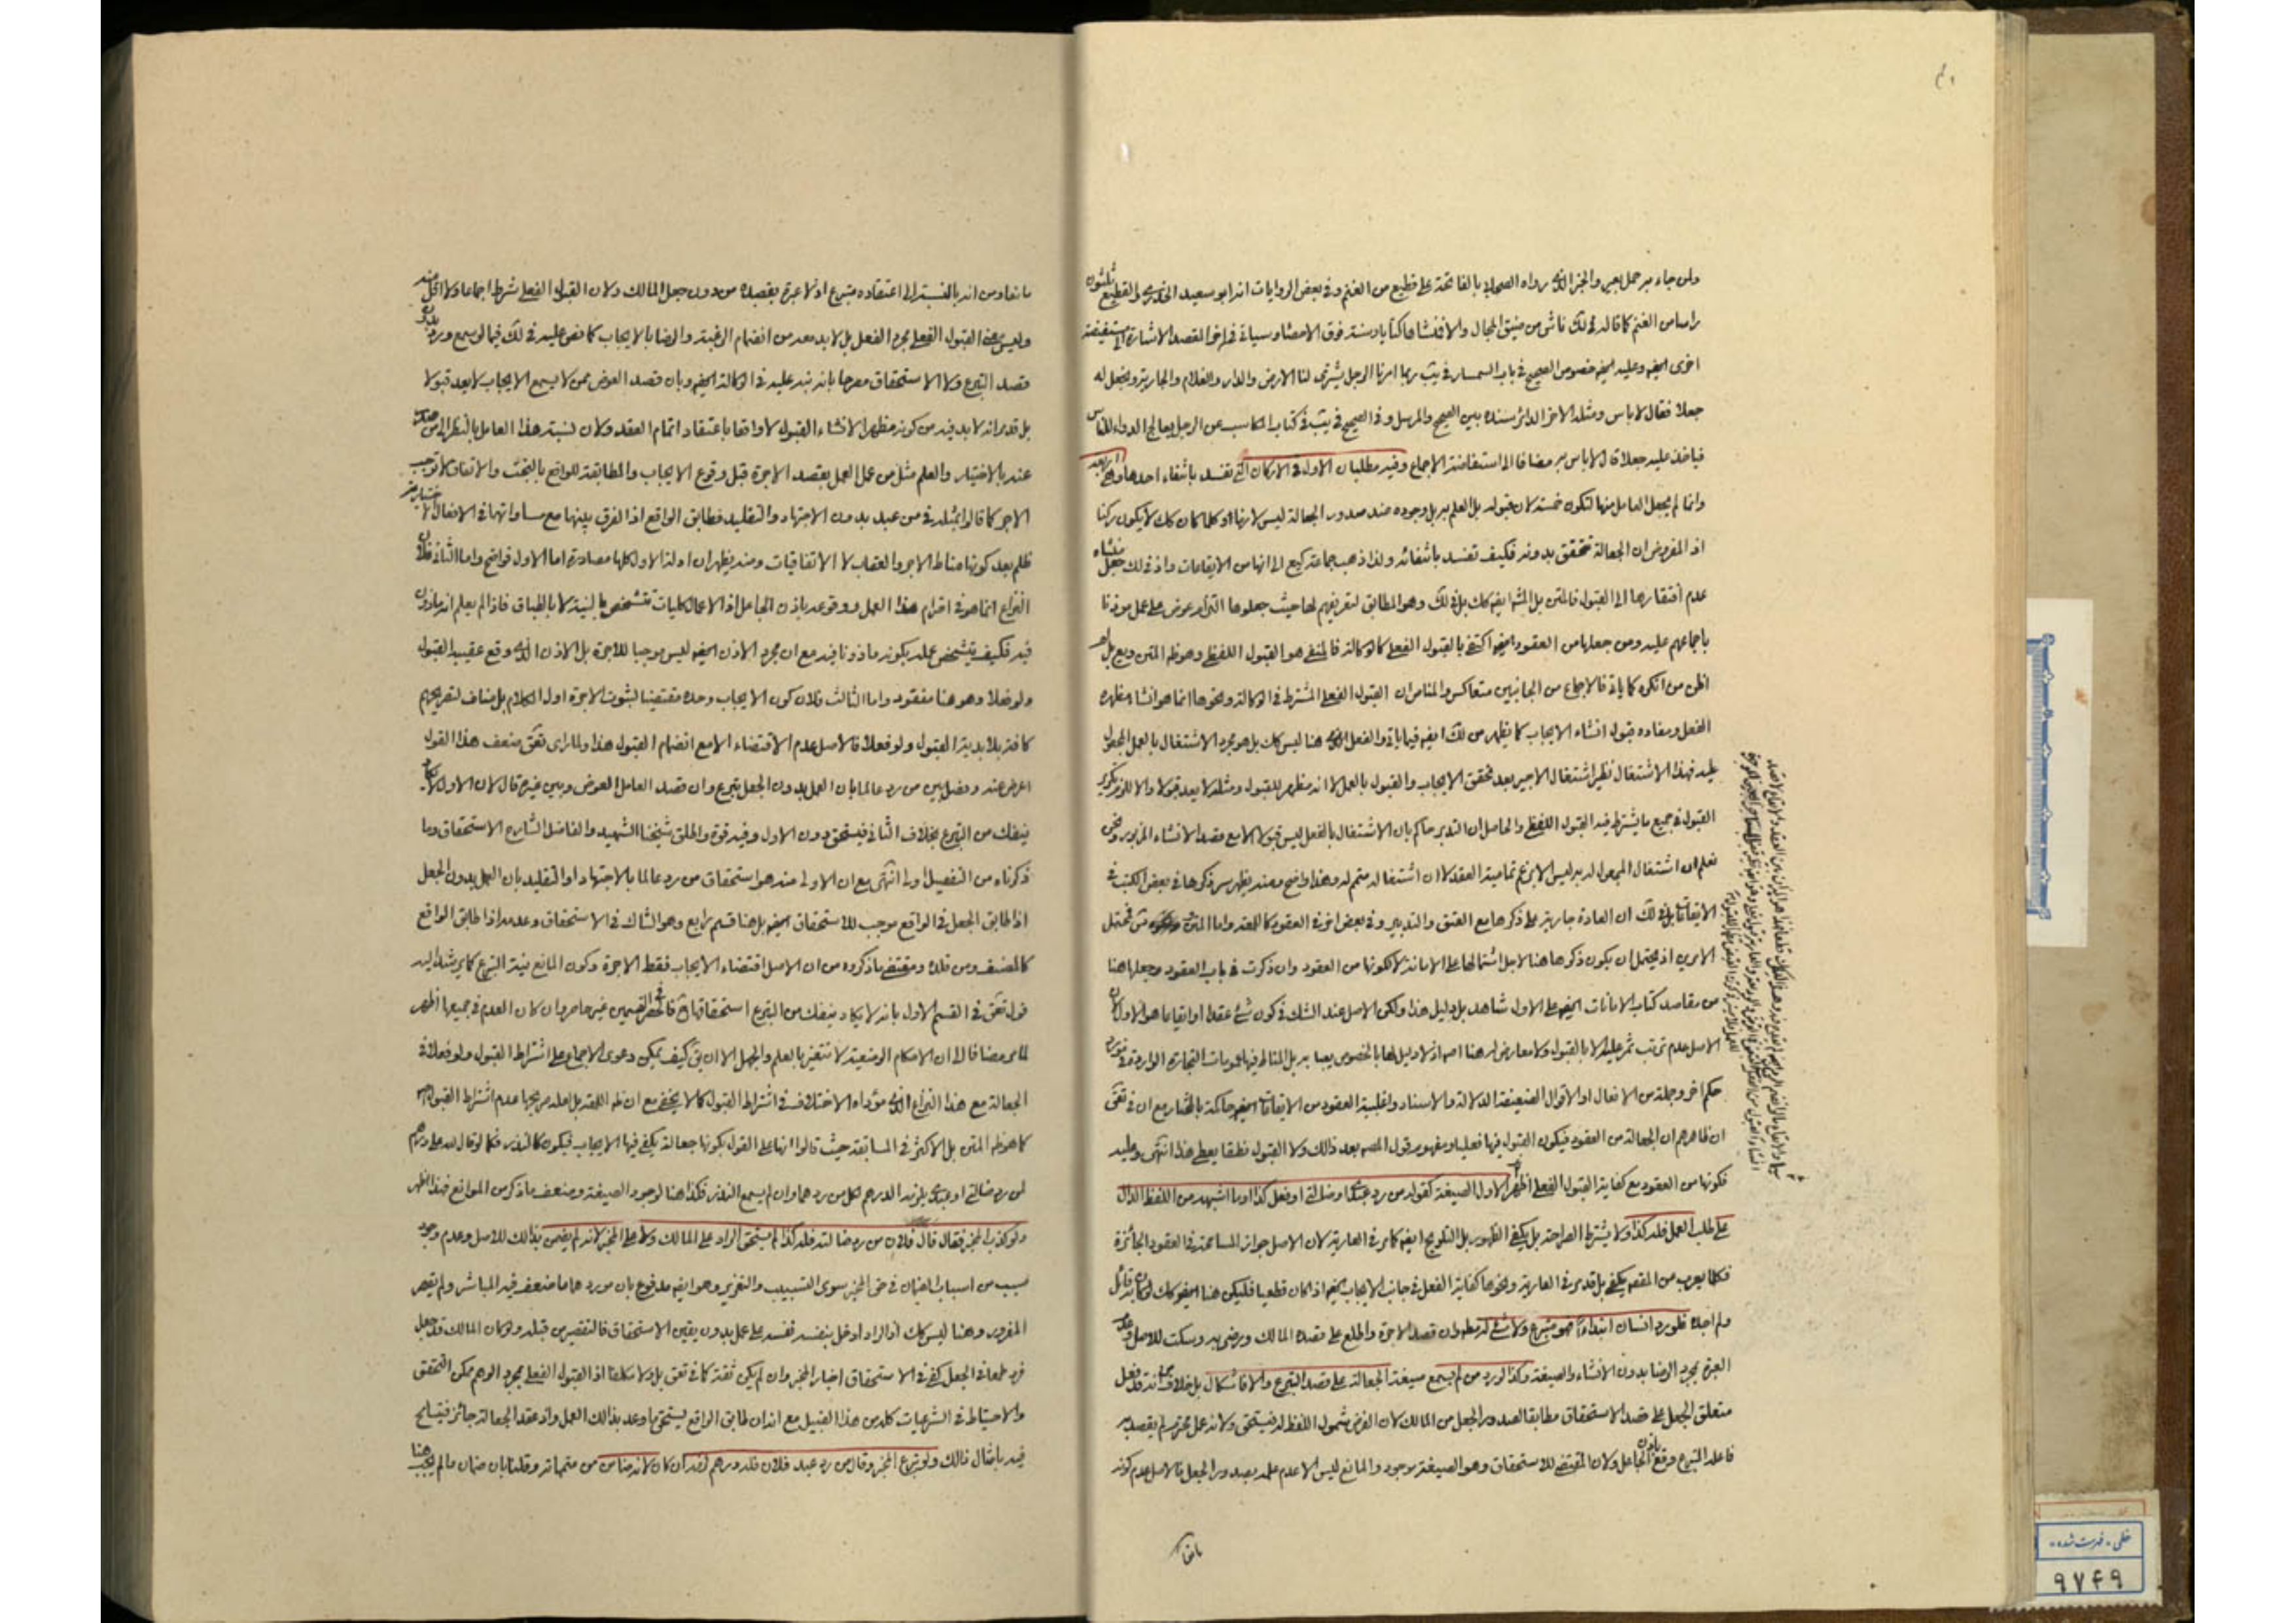 ولمن جاء به حمل بعير والخبر الذي رواه الصحابة بالفاتحة على قطيع من الغنم وفي بعض الروايات انه ابو سعيد الخدري والقطيع ثلثون
راسا من الغنم كما قاله في لك ناش من ضيق المجال والا فنشاهاكنا يادسنة فوق الاحصاء وسياتي في اخر القصد الاشارة الى مستفيضة
اخرى ايضا وعليه ايضا خصوص الصحيح في باب السمسار في يب ربما امرنا الرجل يشترى لنا الارض والدار والغلام والجارية ونجعل له
جعلا فقال لا باس ومثله الاخر الدائر سنده بين الصحيح والمرسل وفي الصحيح في يب في كتاب المكاسب عن الرجل يعالج الدواء للناس
فياخذ عليه جعلا قال لا باس به مضافا الى استفاضة الاجماع وفيه مطلبان الاول في الاركان التي تفسد بانتفاء احدها وهي اربعة
وانما لم يجعل العامل منها لتكون خمسة لان قبوله بل العلم به بل وجوده عند صدور الجعالة ليس لازما وكلما كان كك لا يكون ركنا
اذ المفروض ان الجعالة تتحقق بدونه فكيف تفسد بانتفائه ولذا ذهب جماعة كيع الى انها من الايقاعات واذ في لك جعل منشاء
عدم افتقارها الى القبول فالمتن بل الشرايع كك بل في لك وهو المطابق لتعريفهم لها حيث جعلوها التزام عوض على عمل موذنا
باجماعهم عليه ومن جعلها من العقود ايضا اكتفى بالقبول الفعلي كالوكالة فالمنفي هو القبول اللفظي وهو ظ المتن ويع بل لم
اظن من انكره كما ياتي فالاجماع من الجانبين متعاكس والمناص ان القبول الفعلي المشترط في الوكالة ونحوها انما هو انشاء مظهره
الفعل ومفاده قبول انشاء الايجاب كما يظهر من لك ايضا فيما ياتي والفعل الذي هنا ليس كك بل هو مجرد الاشتغال بالعمل المجعول
عليه فهذا الاشتغال نظير اشتغال الاجير بعد تحقق الايجاب والقبول بالعمل لا انه مظهر للقبول ومثله لا يعد قبولا والا للزم تكرير
القبول في جميع ما يشترط فيه القبول اللفظي والحاصل ان التدبر حاكم بان الاشتغال بالفعل ليس قبولا الا مع قصد الانشاء المزبور ونحن
نعلم ان اشتغال المجعول له به ليس الا بزعم تمامية العقد لا ان اشتغاله متمم له وهذا واضح ومنه يظهر سر ذكرها في بعض الكتب في
الايقاعات بل في لك ان العادة جارية على ذكرها مع العتق والتدبير وفي بعض اخر في العقود كاللمعة واما المتن فيحتمل
الامرين اذ يحتمل ان يكون ذكرها هنا لاجل اشتمالها على الامانة لا لكونها من العقود وان ذكرت في باب العقود وجعلها هنا
من مقاصد كتاب الامانات ايضا على الاول شاهد بل دليل هذا ولكن الاصل عند الشك في كون شئ عقدا او ايقاعا هو الاول لان
الاصل عدم ترتب ثمر عليه الا بالقبول ولا معارض له هنا اصلا اذ لا دليل لها بالخصوص يعبا به بل المناط فيها عمومات التجارة الواردة
حكم اخر وجملة من الافعال او الاقوال الضعيفة الدلالة والاسناد واغلبية العقود من الايقاعات ايضا حاكمة بالمختار مع ان في تعق
ان ظاهرهم ان الجعالة من العقود فيكون القبول فيها فعليا ومفهوم قول المصنف بعد ذالك ولا القبول نطقا يعطى هذا انتهى وعليه
فكونها من العقود مع كفاية القبول الفعلي اظهر الاول الصيغة كقوله من رد عبدي او ضالتي او فعل كذا وما اشبهه من اللفظ الدال
على طلب العمل فله كذا ولا يشترط الصراحة بل يكفي الظهور بل التلويح ايضا كما مر في العارية لان الاصل جواز المسامحة في العقود الجائزة
فكلما يعرب من المقصد يكفي بل قد مر في العارية ونحوها كفاية الفعل في جانب الايجاب ايضا اذا كان قطعيا فليكن هنا ايضا كك لو كان به قائل
ولم اجده فلو رد انسان ابتداء فهو متبرع ولا شئ له مطلقا وان قصد الاجرة واطلع على قصده المالك ورضى به وسكت للاصل وعدم
العبرة بمجرد الرضا بدون الانشاء والصيغة وكذا لو رد من لم يسمع صيغة الجعالة على قصد التبرع والا فاشكال بل خلاف من انه قد فعل
متعلق الجعل على قصد الاستحقاق مطابقا لصدور الجعل من المالك لان الغرض شمول اللفظ له فيستحق ولانه عمل محترم لم يقصد به
فاعله التبرع وقع باذن الجاعل ولان المقتضى للاستحقاق وهو الصيغة موجود والمانع ليس الا عدم علمه بصدور الجعل فالاصل عدم كونه
مانعا ومن انه بالنسبة الى اعتقاده متبرع اذ لا عبرة بقصده من دون جعل المالك ولان القبول الفعلي شرط اجماعا ولا اقل منه
وليس هذا القبول الفعلي مجرد الفعل بل لا بد معه من انضمام الرغبة والرضا بالايجاب كما نص عليه في لك فيما لو سمع ورد بدون
قصد التبرع ولا الاستحقاق مصرحا بانه نبه عليه في الوكالة ايضا وبان قصد العوض ممن لا يسمع الايجاب لا يعد قبولا
بل قد مر انه لا بد فيه من كونه مظهرا لانشاء القبول لا واقعا باعتقاد اتمام العقد ولان نسبة هذا العامل بالنظر الى ما صدر
عنه بالاختيار والعلم مثل من عمل العمل بقصد الاجرة قبل وقوع الايجاب والمطابقة للواقع بالبخت والاتفاق لا توجب
الاجر كما قالوا بمثله في من عبد بدون الاجتهاد والتقليد فطابق الواقع اذ الفرق بينهما مع مساواتهما في الافعال الاختيارية
ظلم بعد كونها مناط الاجر والعقاب لا الاتفاقيات ومنه يظهر ان ادلة الاول كلها مصادرة اما الاول فواضح واما الثاني فلان
النزاع انما هو في احترام هذا العمل ووقوعه باذن الجاعل اذ الاعمال كليات تتشخص بالنية لا بالطباق فاذا لم يعلم انه ماذون
فيه فكيف يتشخص عمله بكونه ماذونا فيه مع ان مجرد الاذن ايضا ليس موجبا للاجرة بل الاذن الذي وقع عقيبه القبول
ولو فعلا وهو هنا مفقود واما الثالث فلان كون الايجاب وحده مقتضيا لثبوت الاجرة اول الكلام بل مناف لتصريحهم
كافة بلابدية القبول ولو فعلا فالاصل عدم الاقتضاء الا مع انضمام القبول هذا ولما راى تعق ضعف هذا القول
اعرض عنه وفصل بين من رد عالما بان العمل بدون الجعل تبرع وان قصد العامل العوض وبين غيره قال لان الاول لا يكاد
ينفك من التبرع بخلاف الثاني فيستحق دون الاول وفيه قوة واطلق شيخنا الشهيد والفاضل الشارح الاستحقاق وما
ذكرناه من التفصيل اولى انتهى مع ان الاولى منه هو استحقاق من رد عالما بالاجتهاد او التقليد بان العمل بدون الجعل
اذا طابق الجعل في الواقع موجب للاستحقاق ايضا بل هنا قسم رابع وهو الشاك في الاستحقاق وعدمه اذا طابق الواقع
كالمصنف ومن قلده ومقتضى ما ذكروه من ان الاصل اقتضاء الايجاب فقط الاجرة وكون المانع نية التبرع كما يرشد اليه
قول تعق في القسم الاول بانه لا يكاد ينفك من التبرع استحقاقهما ايضا فالحصر في القسمين غير حاصر وان كان العدم في جميعها اظهر
لما مر مضافا الى ان الاحكام الوضعية لا تتغير بالعلم والجهل الا ان يق كيف يمكن دعوى الاجماع على اشتراط القبول ولو فعلا في
الجعالة مع هذا النزاع الذي مؤداه الاختلاف في اشتراط القبول كما لا يخفى مع ان ظ اللمعة بل لعله صريحها عدم اشتراط القبول اصلا
كما هو ظ المتن بل الاكثر في المسابقة حيث قالوا انها على القول بكونها جعالة يكفي فيها الايجاب فيكون كالنذر فكما لو قال لله على درهم
لمن رد ضالتي او عبدي يلزمه الدرهم لكل من رد هما وان لم يسمع النذر فكذا هنا لوجود الصيغة وضعف ما ذكر من الموانع فهذا اظهر
ولو كذب المخبر فقال قال فلان من رد ضالته فله كذا لم يستحق الراد على المالك ولا على المخبر لانه لم يضمن بذالك للاصل وعدم وجود
سبب من اسباب الضمان في حق المخبر سوى التسبيب والتغرير وهو ايضا مدفوع بان مورد هما ما ضعف فيه المباشر ولم يقصر
المغرور وهنا ليس كك اذ الراد ادخل بنفسه نفسه على عمل بدون يقين الاستحقاق فالتقصير من قبله ولو كان المالك قد جعل
فرد طمعا في الجعل كفى في الاستحقاق اخبار المخبر وان لم يكن ثقة كما في تعق بل ولا مكلفا اذ القبول الفعلي بمجرد الوهم ممكن التحقق
والاحتياط في الشرعيات كله من هذا القبيل مع انه ان طابق الواقع يستحق ما وعد بذالك العمل واذ عقد الجعالة جائز فيتسامح
فيه بامثال ذالك ولو تبرع المخبر وقال من رد عبد فلان فله درهم لزمه ان كان لانه ضامن من متمماته وقلنا بان ضمان ما لم يجب هنا
باطل
خطی - فهرست شده
۹۷۴۹